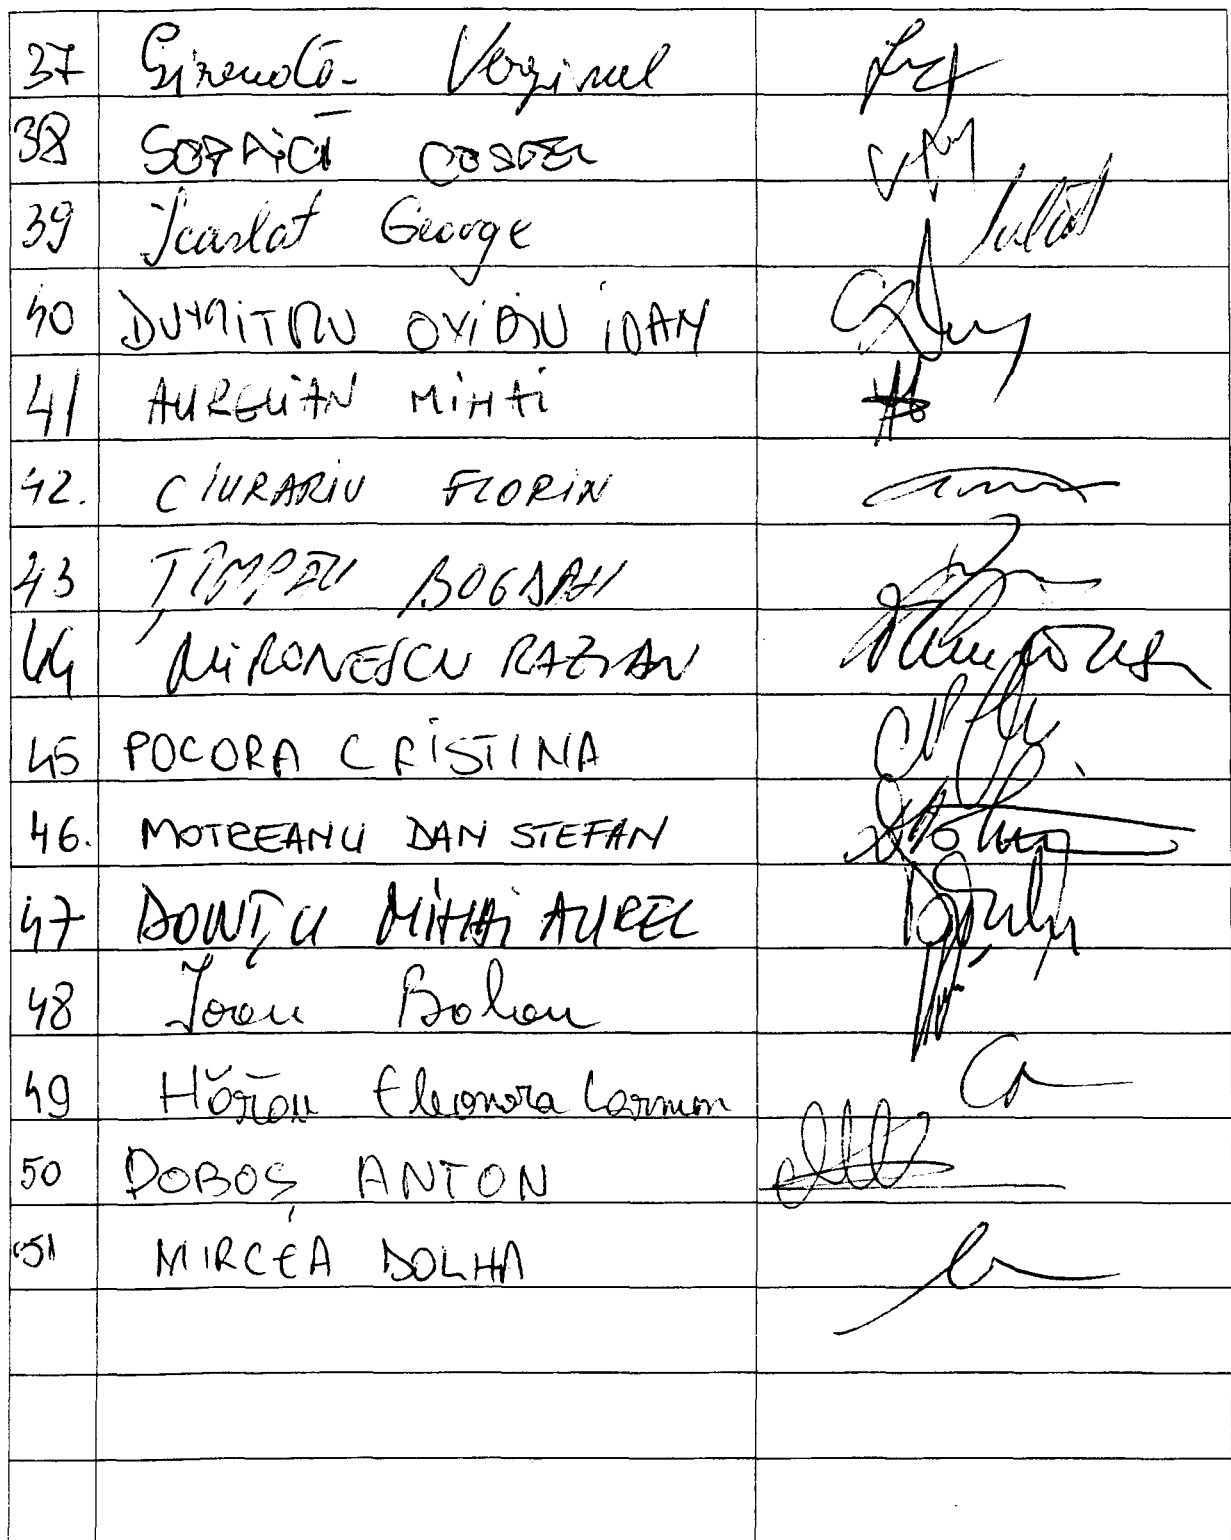 37 Gireadă Verginel
38 SOPRICĂ COSTEL
39 Scarlat George
40 DUMITRU OVIDIU IOAN
41 AURELIAN MIHAI
42. CIURARIU FLORIN
43 ȚÎMPĂU BOGDAN
44 MIRONESCU RAZVAN
45 POCORA CRISTINA
46. MOTREANU DAN STEFAN
47 DONȚU MIHAI AUREL
48 Ioan Balan
49 Hărău Eleonora Carmen
50 DOBOȘ ANTON
51 MIRCEA DOLHA